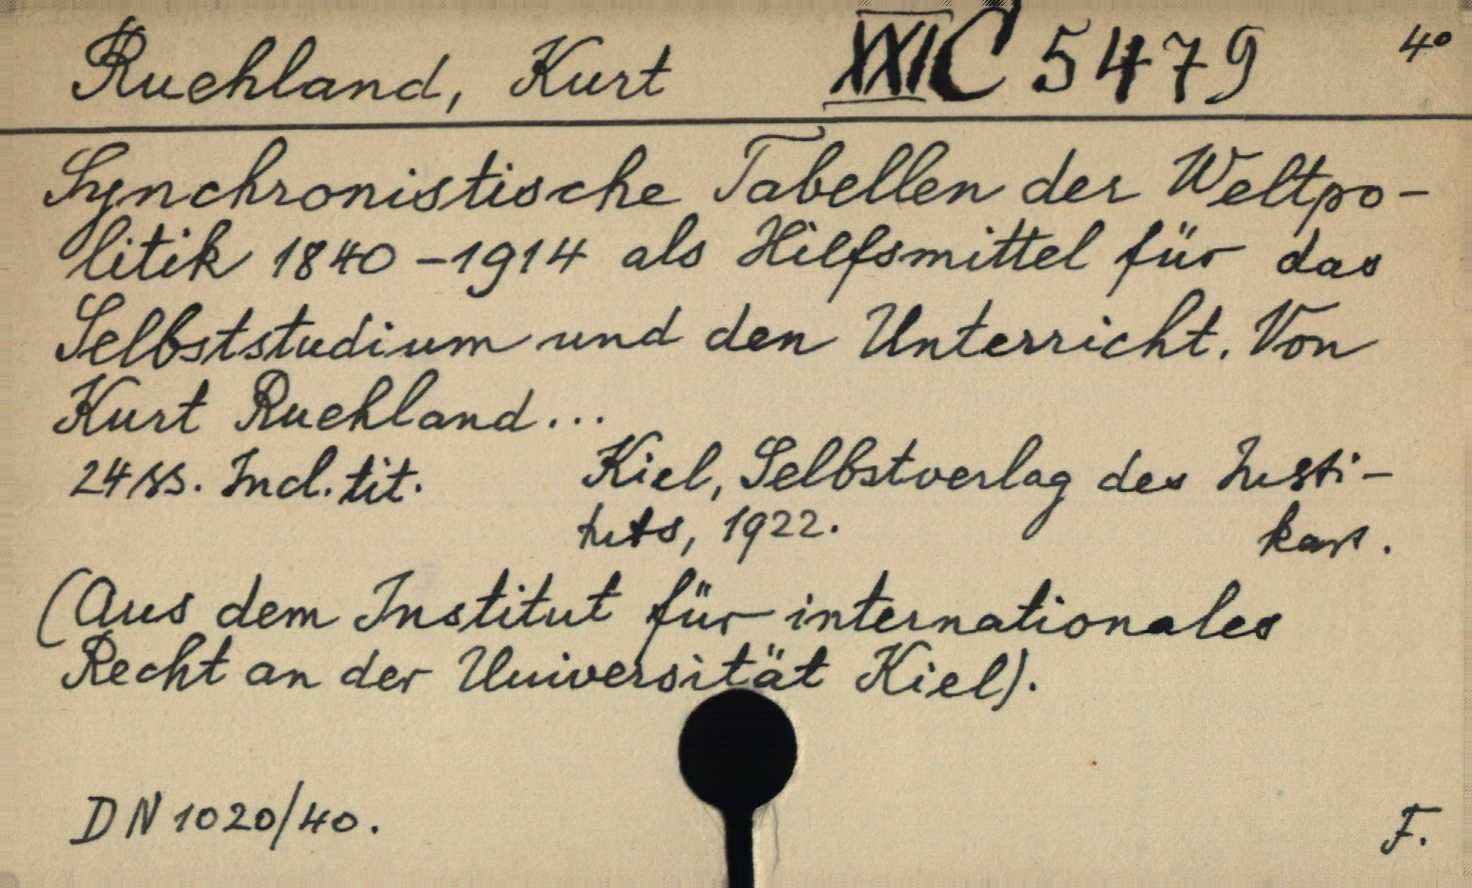 Ruehland, Kurt XXI C 5479 4°
Synchronistische Tabellen der Weltpo-
litik 1840-1914 als Hilfsmittel für das
Selbststudium und den Unterricht. Von
Kurt Ruehland...
24 ss. Incl. tit. Kiel, Selbstverlag des Insti-
tuts, 1922. kart.
(Aus dem Institut für internationales
Recht an der Universität Kiel).
DN 1020/40. F.